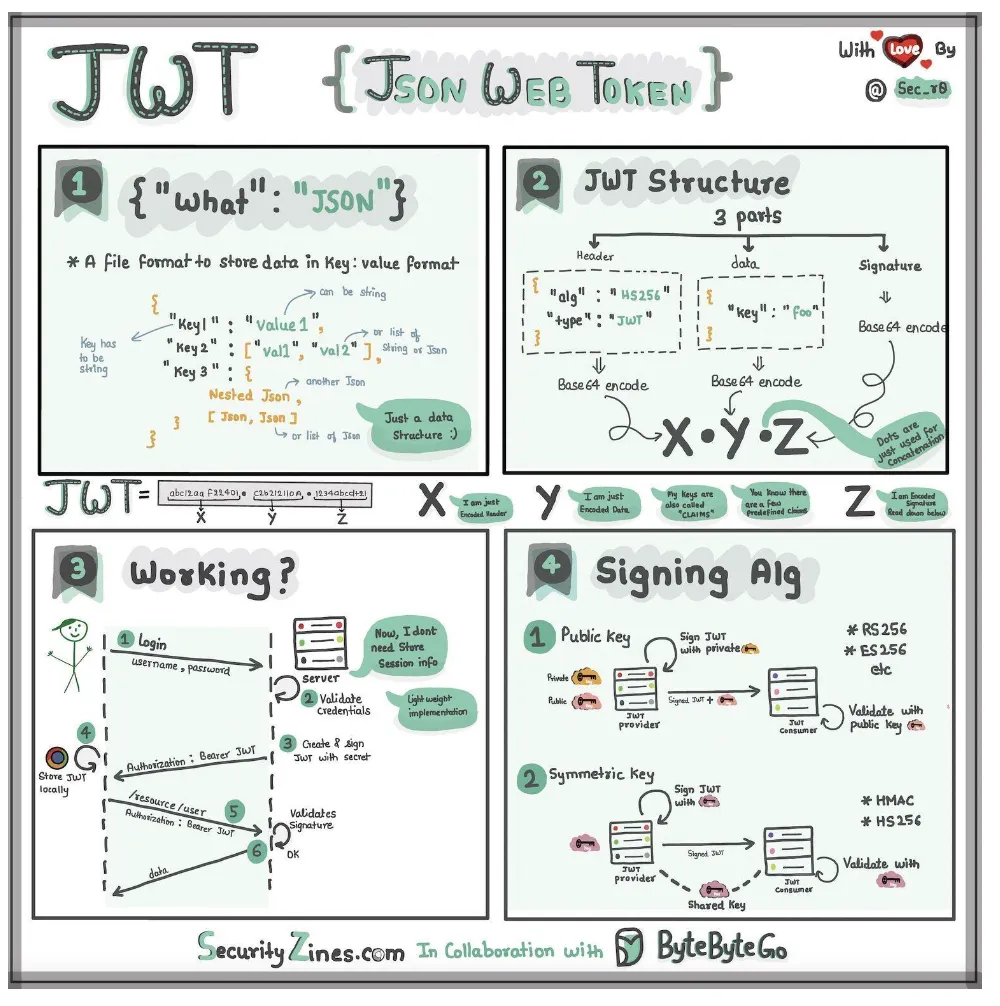 JWT
{ JSON WEB TOKEN }
With Love By
@ Sec_r0
1
{"What": "JSON"}
* A file format to store data in Key: value format
{
"Key1" : "Value1",
"Key2" : ["val1", "val2"],
"Key 3" : {
Nested Json,
[ Json, Json ]
}
}
can be string
Key has
to be
string
or list of
String or Json
another Json
or list of Json
Just a data
Structure :)
2
JWT Structure
3 parts
Header
data
Signature
{
"alg" : "HS256"
"type" : "JWT"
}
{
"key" : "foo"
}
Base64 encode
Base64 encode
Base64 encode
X.Y.Z
Dots are
just used for
Concatenation
JWT =
abc12aa f22401. c2b21211on. 1234abcd+21
X
Y
Z
X
I am just
Encoded Header
Y
I am just
Encoded Data
My keys are
also called
"CLAIMS"
You know there
are a few
predefined claims
Z
I am Encoded
Signature
Read down below
3
Working?
1 Login
username, password
server
Now, I dont
need Store
Session info
2 Validate
credentials
Light weight
implementation
3 Create & sign
JWT with secret
4
Store JWT
locally
Authorization : Bearer JWT
/resource/user
5
Authorization : Bearer JWT
Validates
Signature
OK
6
data
4
Signing Alg
1 Public Key
Sign JWT
with private
* RS256
* ES256
etc
Private
Public
Signed JWT +
JWT
provider
JWT
Consumer
Validate with
public Key
2 Symmetric Key
Sign JWT
with
* HMAC
* HS256
Signed JWT
JWT
provider
JWT
Consumer
Validate with
Shared Key
SecurityZines.com In Collaboration with ByteByteGo